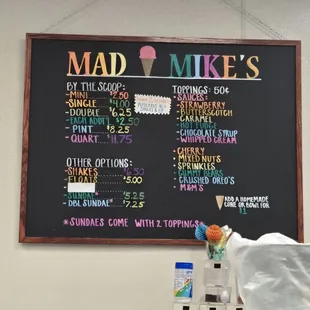 MAD MIKE'S
BY THE SCOOP:
-MINI $2.50
-SINGLE $4.00
-DOUBLE $6.25
-EACH ADD'L $2.50
-PINT $8.25
-QUART $11.75
OTHER OPTIONS:
-SHAKES $6.50
-FLOATS $5.00
-SUNDAE* $5.25
-DBL SUNDAE* $7.25
*SUNDAES COME WITH 2 TOPPINGS*
TOPPINGS: 50¢
-SAUCES:
-STRAWBERRY
-BUTTERSCOTCH
-CARAMEL
-HOT FUDGE
-CHOCOLATE SYRUP
-WHIPPED CREAM
-CHERRY
-MIXED NUTS
-SPRINKLES
-GUMMY BEARS
-CRUSHED OREO'S
-M&M'S
ADD A HOMEMADE
CONE OR BOWL FOR
$1